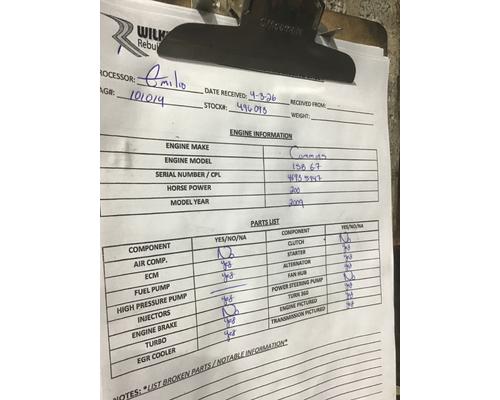 WILK
Rebui
PROCESSOR: Emilio DATE RECEIVED: 9-3-26 RECEIVED FROM:
TAG#: 101014 STOCK#: 496093 WEIGHT:
ENGINE INFORMATION
ENGINE MAKE Cummins
ENGINE MODEL ISB 6.7
SERIAL NUMBER / CPL
HORSE POWER 200
MODEL YEAR 2009
PARTS LIST
COMPONENT YES/NO/NA COMPONENT YES/NO/NA
AIR COMP. No CLUTCH No
ECM yes STARTER yes
FUEL PUMP yes ALTERNATOR yes
HIGH PRESSURE PUMP — FAN HUB No
INJECTORS yes POWER STEERING PUMP yes
ENGINE BRAKE No TURN 360 yes
TURBO yes ENGINE PICTURED yes
EGR COOLER yes TRANSMISSION PICTURED
NOTES: *LIST BROKEN PARTS / NOTABLE INFORMATION*